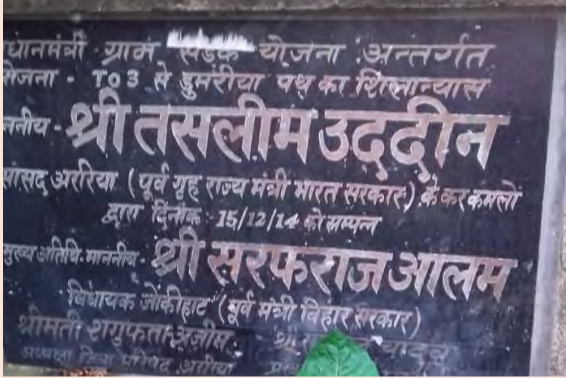 धानमंत्री ग्राम सड़क योजना अन्तर्गत
योजना - T03 से डुमरीया पथ का शिलान्यास
ननीय - श्री तसलीम उद्दीन
सांसद अररिया (पूर्व गृह राज्य मंत्री भारत सरकार) के कर कमलों
द्वारा दिनांक 15/12/14 को सम्पन्न
मुख्य अतिथि माननीय श्री सरफराज आलम
विधायक जोकीहाट (पूर्व मंत्री बिहार सरकार)
श्रीमती शगुफ्ता अजीम
अध्यक्षा जिला परिषद अररिया